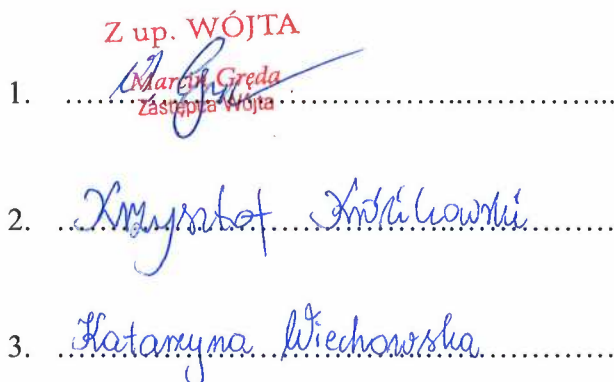 Z up. WÓJTA
Marcin Gręda
Zastępca Wójta
1. ........................................................
2. Krzysztof Królikowski
3. Katarzyna Wiechowska